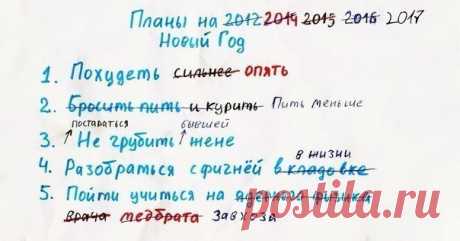 Планы на 2012 2014 2015 2016 2017
Новый Год
1. Похудеть сильнее опять
2. Бросить пить и курить Пить меньше
постараться бывшей
3. Не грубить жене
в жизни
4. Разобраться с фигнёй в кладовке
5. Пойти учиться на ядерного физика
врача медбрата Завхоза
posta-magazine.ru